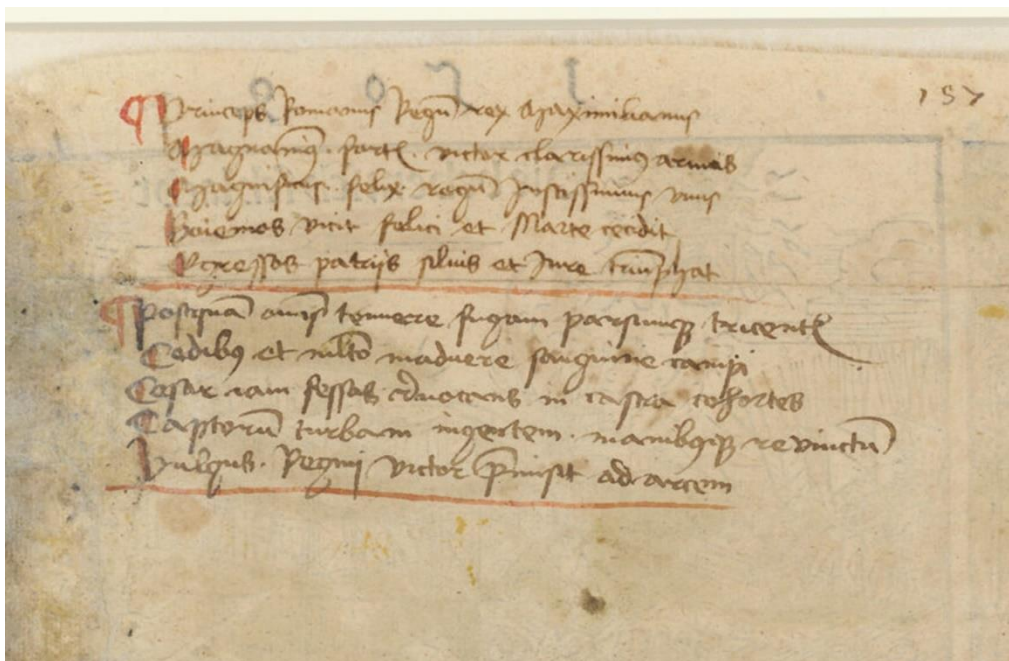 157
¶ Princeps Romanus Regū rex Maximilianus
Magnanimꝰ. fort. victor clarissimꝰ armis
Magnificus. felix. regū Justissimus vnus
Boiemos vicit felici et Marte cecidit
Egressos patriis siluis et Jure triūphat
¶ Postquā tenuere fugam parsumqꝫ tricenti
Cedibꝰ et multo maduere sanguine campi
Cesar iam fessos in castra cohortes
Captorū turbam ingentem. manibꝰqꝫ reuinctū
Vulgus. Regni victor p̄misit ad arcem